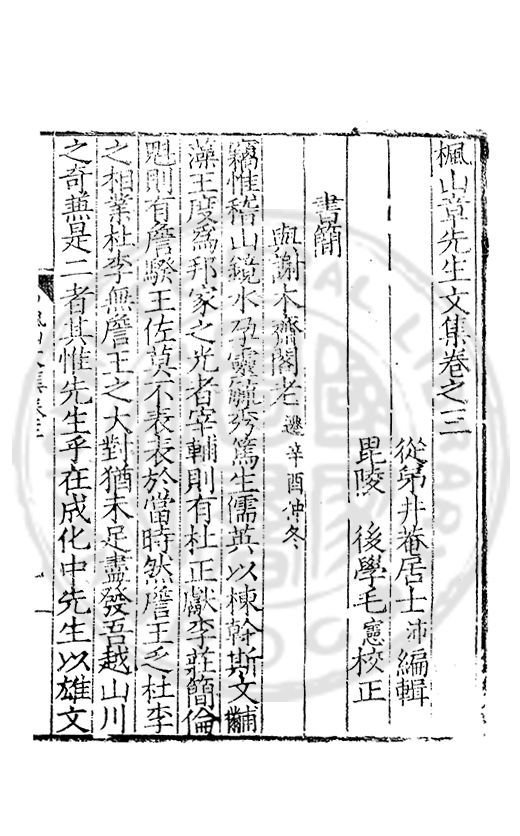 楓山章先生文集卷之三
從弟井菴居士沛編輯
毘陵 後學毛憲校正
書簡
與謝木齋閣老 遷辛酉仲冬
竊惟稽山鏡水孕靈毓秀篤生儒英以棟幹斯文黼
藻王度爲邦家之光者宰輔則有杜正獻李莊簡倫
魁則有詹騤王佐莫不表表於當時然詹王乏杜李
之相業杜李無詹王之大對猶未足盡發吾越山川
之奇兼是二者其惟先生乎在成化中先生以雄文